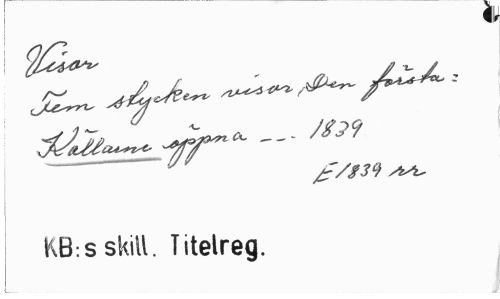 Visor
Fem stycken visor, Den första:
Källarne öppna --- 1839
E1839 rr
KB:s skill. Titelreg.